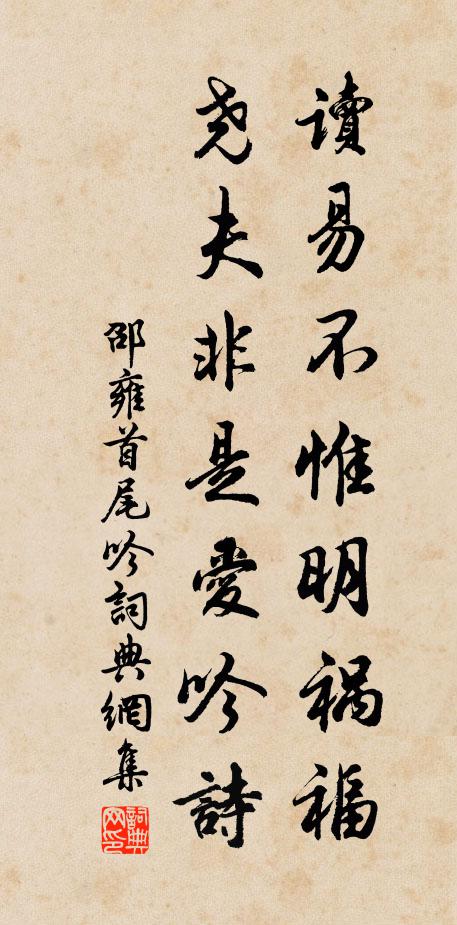 讀易不惟明禍福
尧夫非是愛吟詩
邵雍首尾吟詞典網集
詞典網印